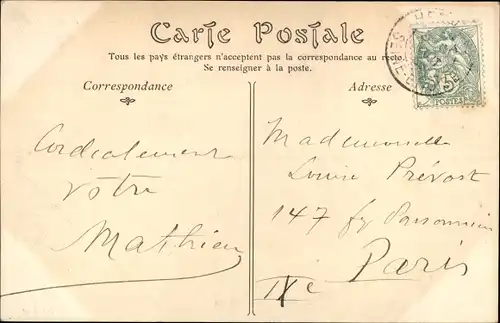 Carte Postale
Tous les pays étrangers n'acceptent pas la correspondance au recto.
Se renseigner à la poste.
Correspondance
Adresse
Cordialement
vôtre
Mathieu
Mademoiselle
Louise Prévost
147 fg Poissonnière
Paris
IXe
5c
POSTES